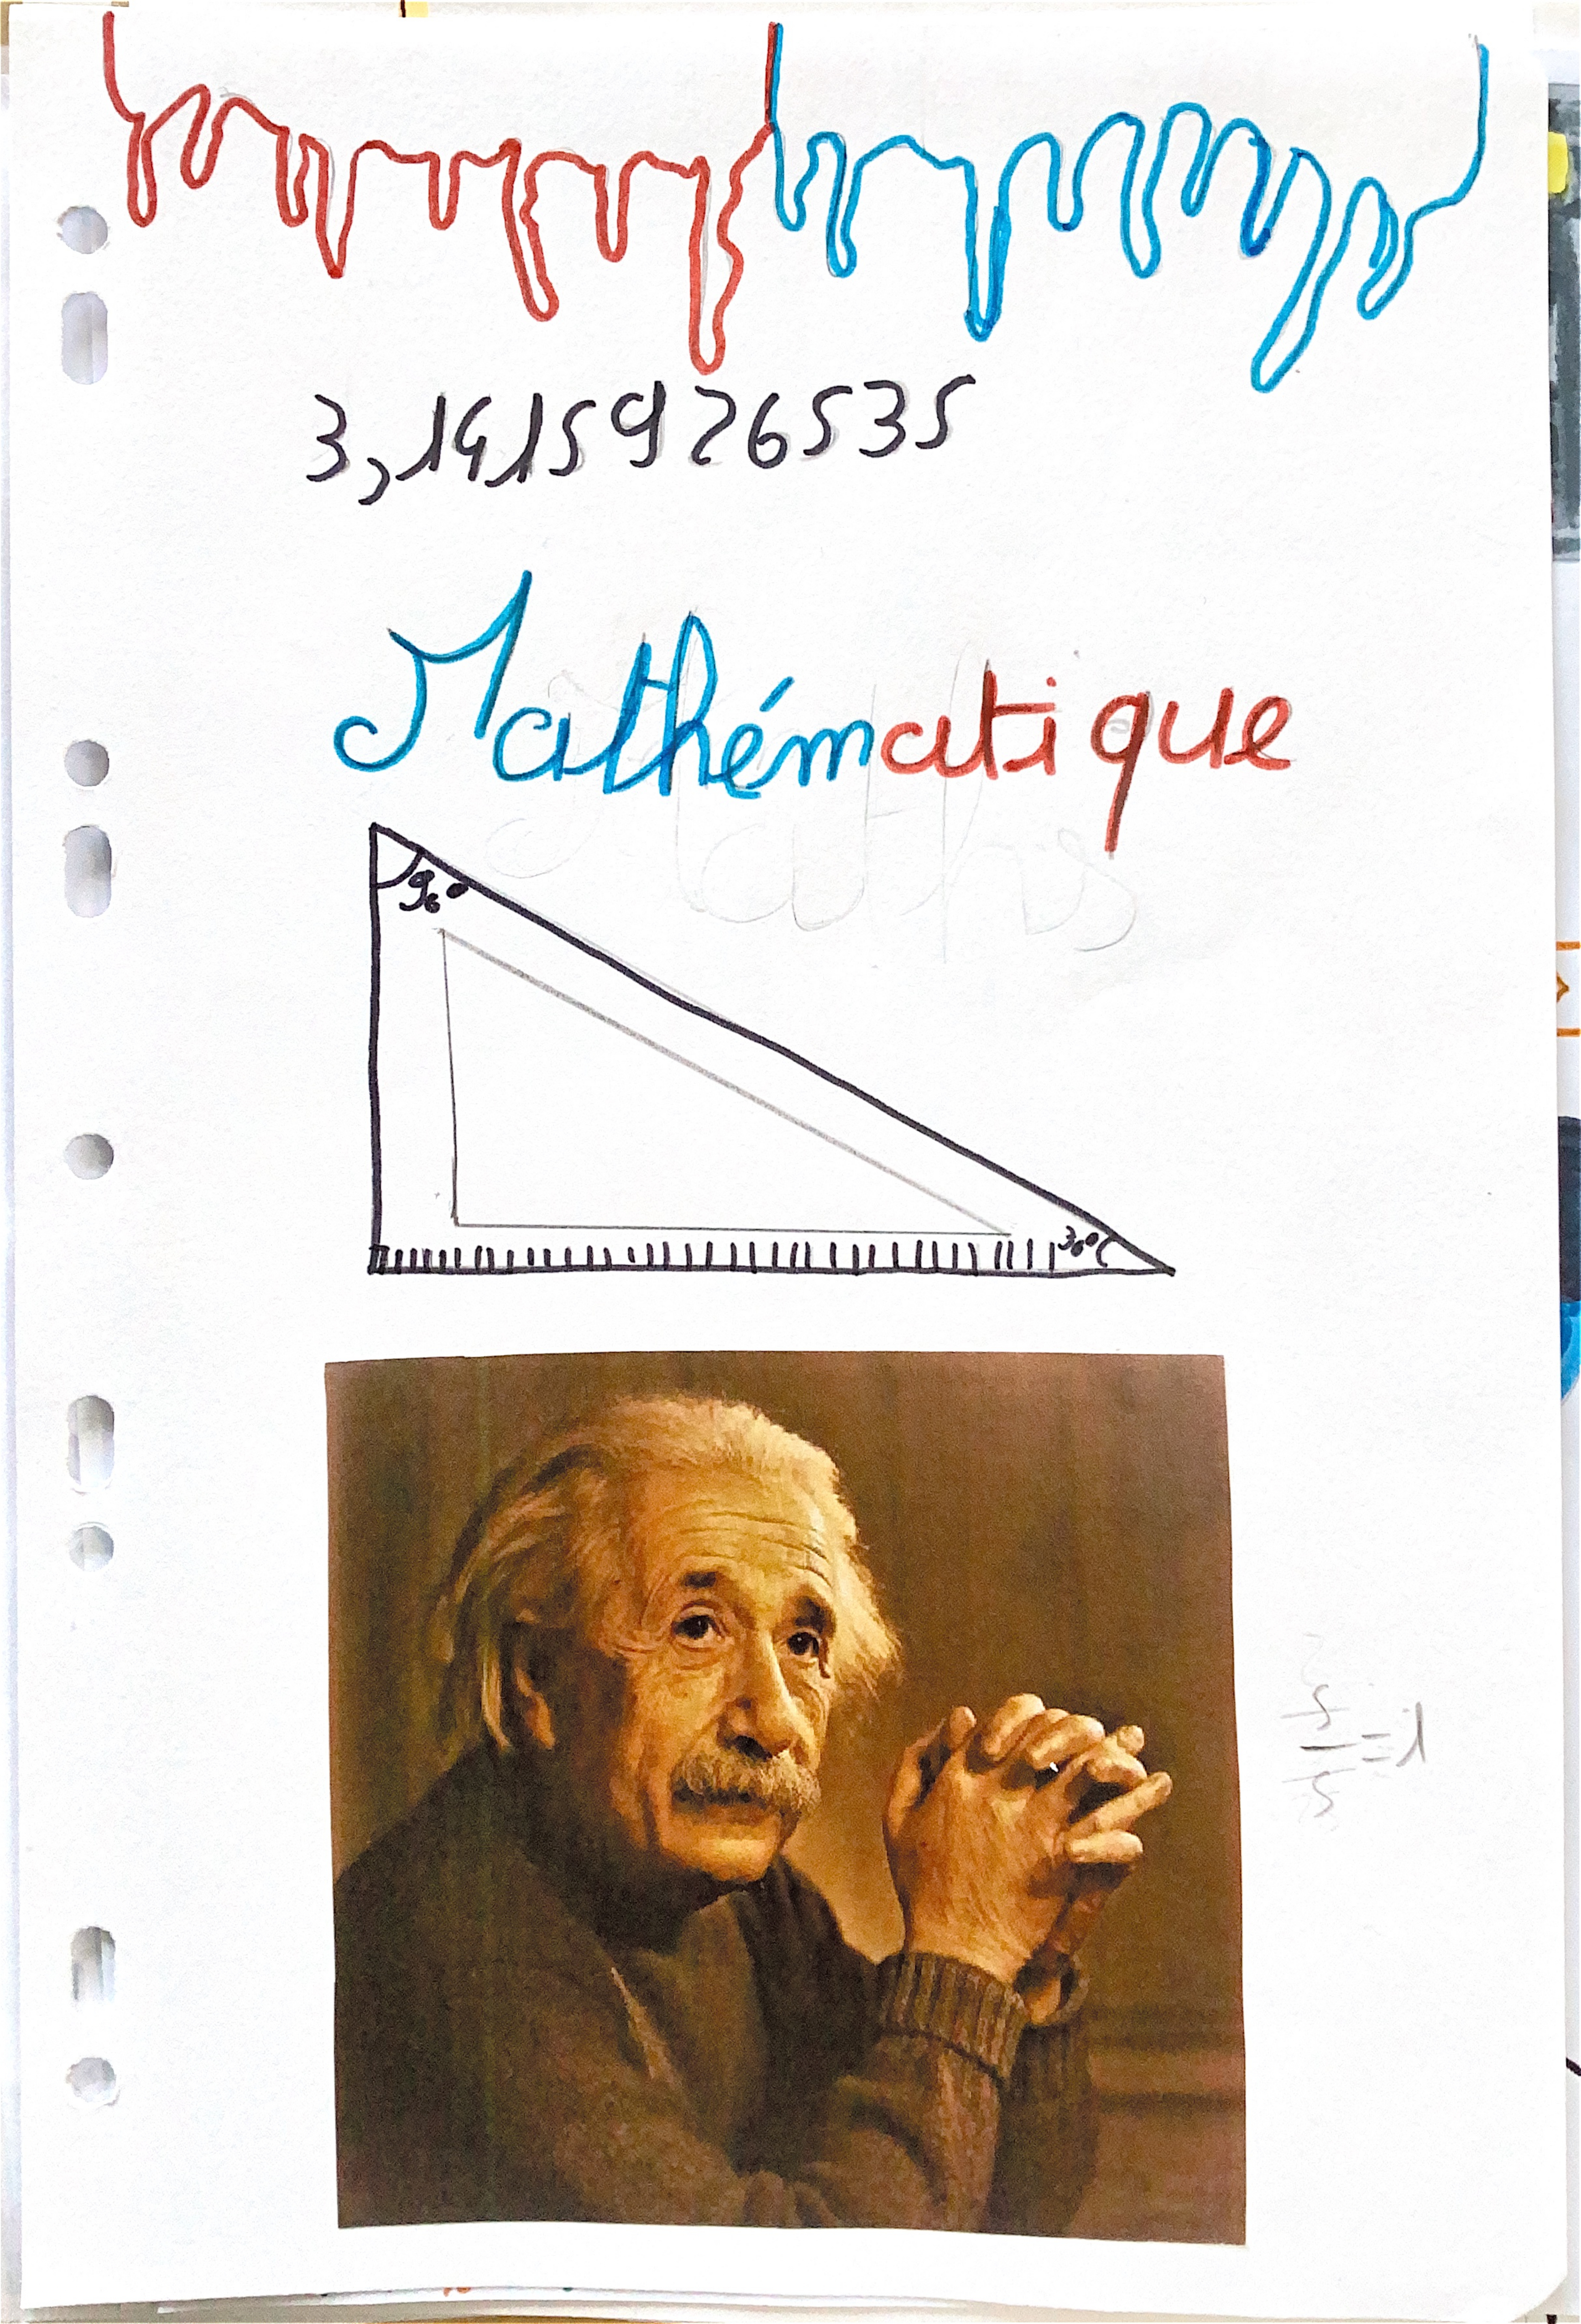 3,1415926535
Mathématique
Maths
90°
30°
5/5 = 1